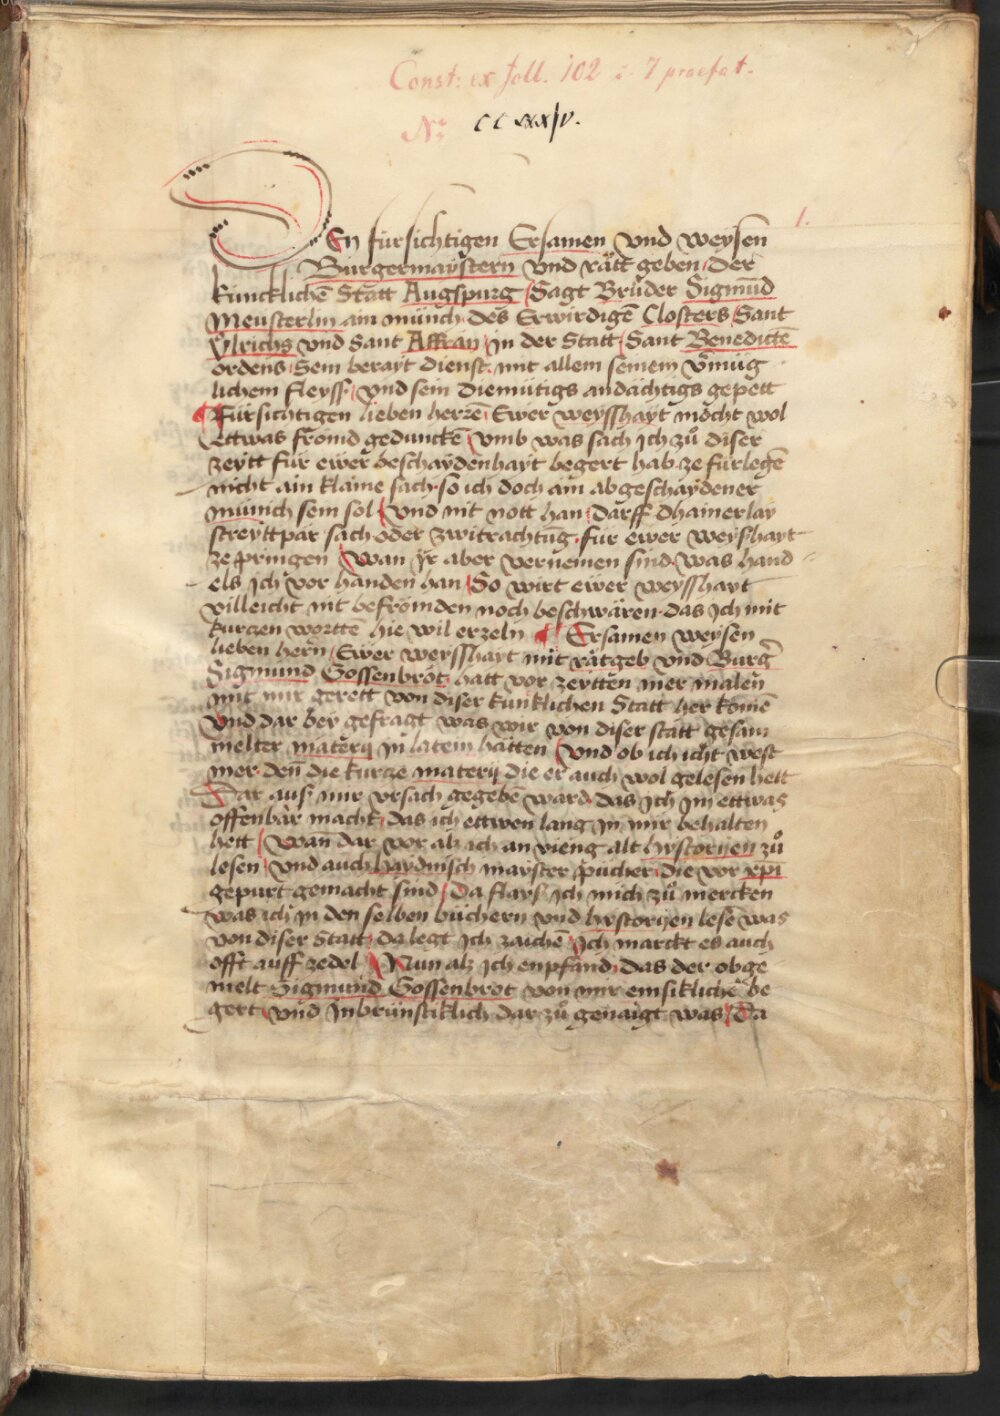 Const: ex foll. 102 i. 7 praefat.
Nr: CCxxxjv.
1.
DEn fürsichtigen Ersamen vnd weysen
Burgermaystern vnd rätt geben, der
küncklichē Statt Augspurg, Sagt Brůder Sigmūd
Meusterlin ain münch des Erwirdigē Closters Sant
Vlrichs vnd Sant Affran in der Statt, Sant Benedictē
ordens, Sein berayt dienst, mit allem seinem vermüg
lichem fleyss, vnd sein diemütigs andächtigs gepett
Fürsichtigen lieben herzē, Ewer weysshayt möcht wol
ettwas frömd gedunckē vmb was sach ich zů diser
zeytt für ewer beschaydenhayt begert hab ze fürlegē
nicht ain klaine sach, so ich doch ain abgeschaydener
münich sein sol, vnd nit nott han, darff dhainerlay
streyttpär sach oder zwitrachtūg, für ewer weyshayt
ze pringen, wan jr aber vernemen sind, was hand=
els ich vor handen han, So wirt ewer weysshayt
villeicht nit befrömden noch beschwären, das ich mit
kurczen worttē hie wil erzeln Ersamen weysen
lieben hern, Ewer weysshayt mit rätgeb vnd Burgr
Sigmund Gossenbrot, hatt vor zeytten mer malen
mit mir gerett von diser künklichen Statt her komē
vnd dar bey gefragt was wir von diser statt gesam
melter materij in latein hätten, vnd ob ich icht west
mer, denn die kurcze materij die er auch wol gelesen hett
Dar aus mir vrsach gegebē ward, das ich im ettwas
offenbar macht, das ich ettwen lang in mir behalten
hett, Wan dar vor als ich an vieng alt hystorijen zů
lesen, vnd auch haydnisch mayster pücher, die vor xpi
gepurt gemacht sind, da flays ich mich zů mercken
was ich in den selben büchern vnd hystorijen lese was
von diser Statt, da legt ich zaichē, ich marckt es auch
offt auff zedel, Nun als ich enpfand, das der obge
melt Sigmund Gossenbrot von mir einsiklichē be
gert, vnd Inbrünstiklich dar zů genaigt was, Da